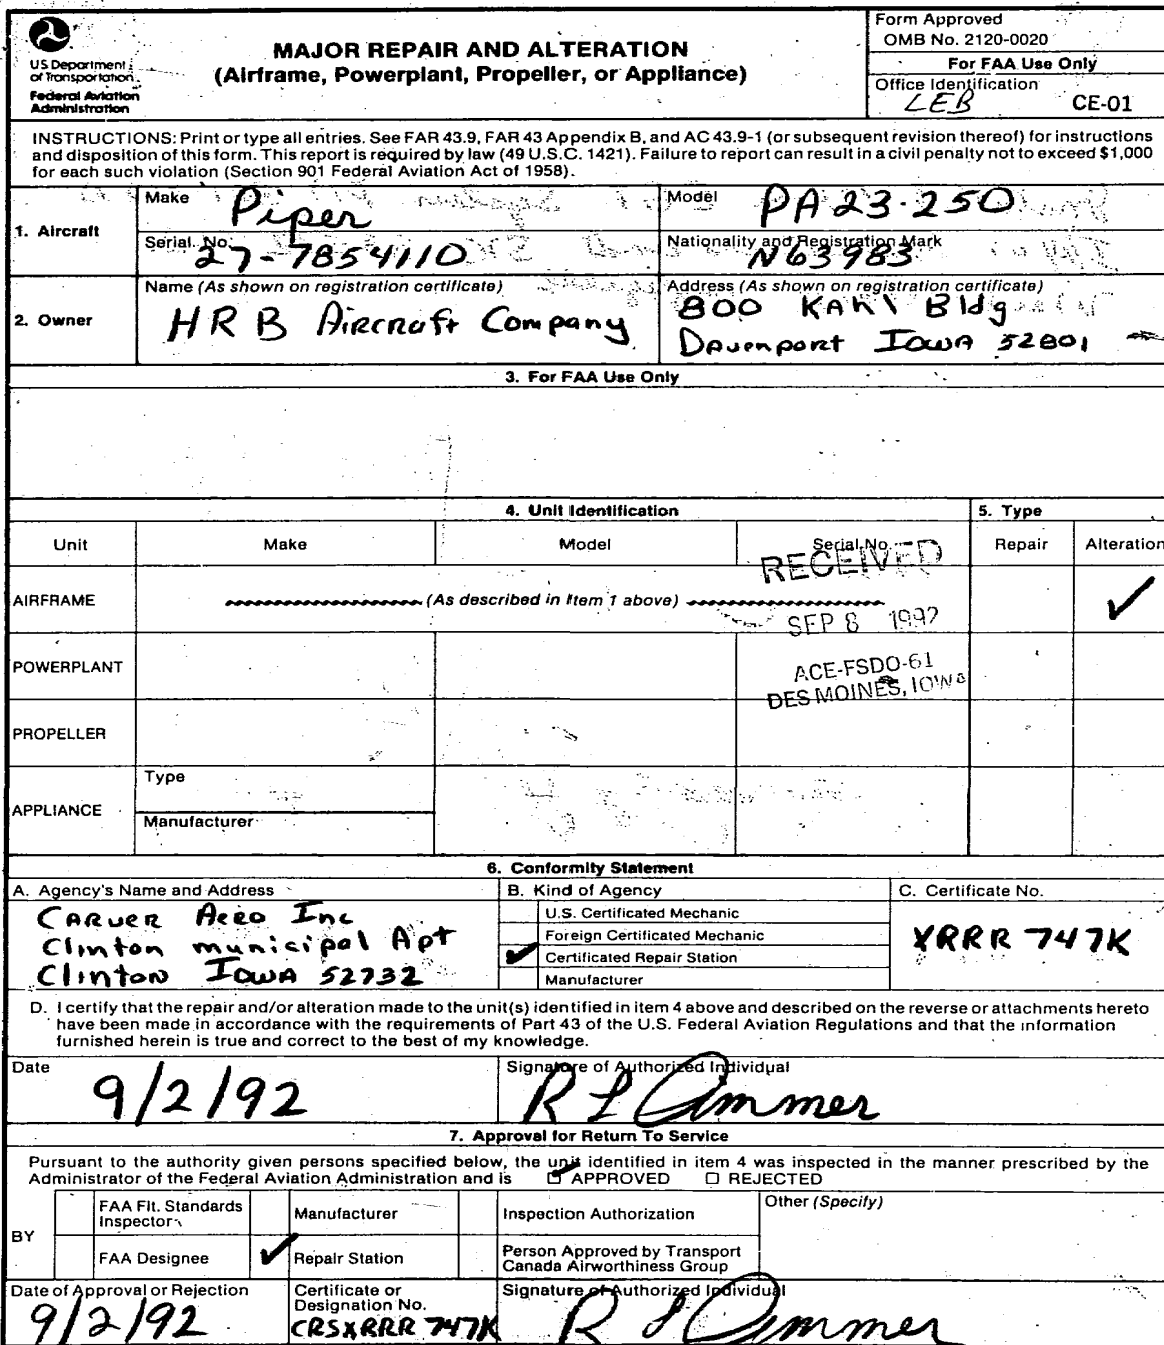 US Department
of Transportation
Federal Aviation
Administration
MAJOR REPAIR AND ALTERATION
(Airframe, Powerplant, Propeller, or Appliance)
Form Approved
OMB No. 2120-0020
For FAA Use Only
Office Identification
LEB CE-01
INSTRUCTIONS: Print or type all entries. See FAR 43.9, FAR 43 Appendix B, and AC 43.9-1 (or subsequent revision thereof) for instructions
and disposition of this form. This report is required by law (49 U.S.C. 1421). Failure to report can result in a civil penalty not to exceed $1,000
for each such violation (Section 901 Federal Aviation Act of 1958).
1. Aircraft
Make Piper
Model PA23-250
Serial No. 27-7854110
Nationality and Registration Mark
N63983
2. Owner
Name (As shown on registration certificate)
HRB Aircraft Company
Address (As shown on registration certificate)
800 KAHl Bldg
Davenport Iowa 52801
3. For FAA Use Only
4. Unit Identification
5. Type
Unit Make Model Serial No. Repair Alteration
RECEIVED
AIRFRAME (As described in Item 1 above) ✓
SEP 8 1992
POWERPLANT
ACE-FSDO-61
DES MOINES, IOWA
PROPELLER
APPLIANCE
Type
Manufacturer
6. Conformity Statement
A. Agency's Name and Address
CARVER Aero Inc
Clinton municipal Apt
Clinton Iowa 52732
B. Kind of Agency
U.S. Certificated Mechanic
Foreign Certificated Mechanic
✓ Certificated Repair Station
Manufacturer
C. Certificate No.
XRRR 747K
D. I certify that the repair and/or alteration made to the unit(s) identified in item 4 above and described on the reverse or attachments hereto
have been made in accordance with the requirements of Part 43 of the U.S. Federal Aviation Regulations and that the information
furnished herein is true and correct to the best of my knowledge.
Date
9/2/92
Signature of Authorized Individual
R L Ammer
7. Approval for Return To Service
Pursuant to the authority given persons specified below, the unit identified in item 4 was inspected in the manner prescribed by the
Administrator of the Federal Aviation Administration and is ☑ APPROVED ☐ REJECTED
BY
FAA Flt. Standards
Inspector
Manufacturer
Inspection Authorization
Other (Specify)
FAA Designee
✓ Repair Station
Person Approved by Transport
Canada Airworthiness Group
Date of Approval or Rejection
9/2/92
Certificate or
Designation No.
CRSXRRR 747K
Signature of Authorized Individual
R L Ammer